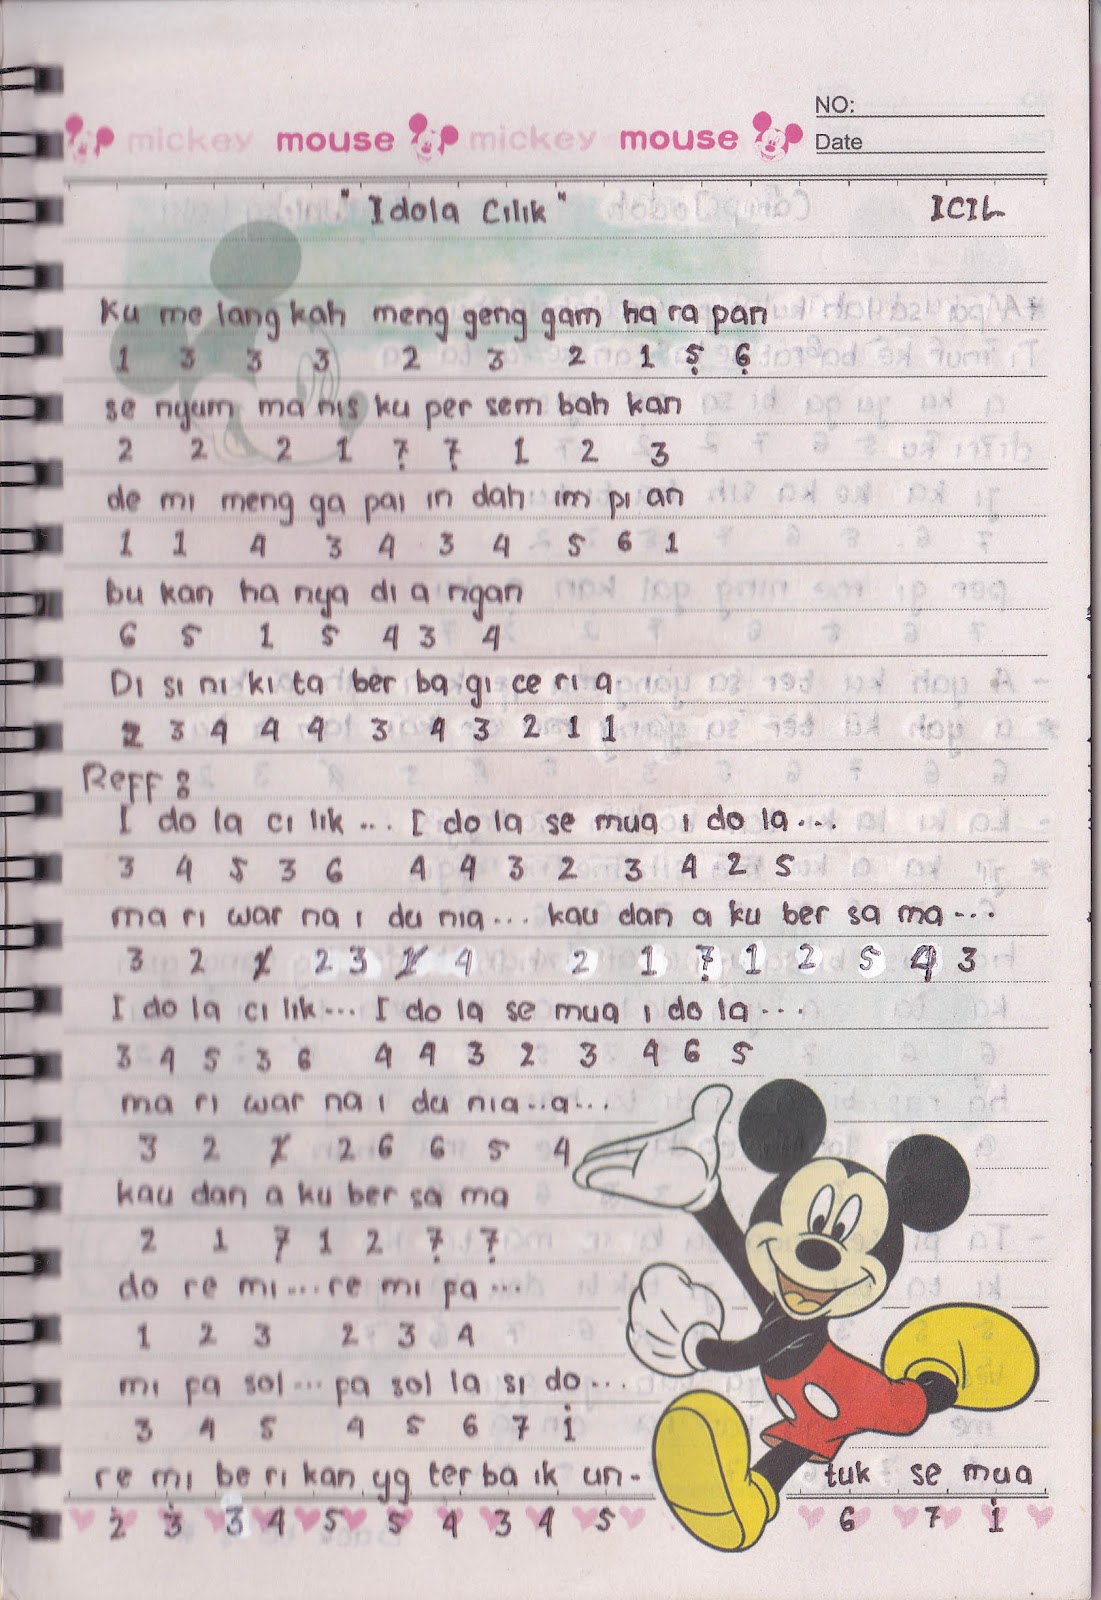 NO:
mickey mouse mickey mouse
Date
" Idola Cilik " ICIL
Ku me lang kah meng geng gam ha ra pan
1 3 3 3 2 3 2 1 5̣ 6̣
se nyum ma nis ku per sem bah kan
2 2 2 1 7̣ 7̣ 1 2 3
de mi meng ga pai in dah im pi an
1 1 4 3 4 3 4 5 6 1
bu kan ha nya di a ngan
6 5 1 5 4 3 4
Di si ni ki ta ber ba gi ce ri a
2 3 4 4 4 3 4 3 2 1 1
Reff :
I do la ci lik ... I do la se mua i do la ...
3 4 5 3 6 4 4 3 2 3 4 2 5
ma ri war na i du nia ... kau dan a ku ber sa ma ...
3 2 1̸ 2 3 1̸ 4 2 1 7̣ 1 2 5 4 3
I do la ci lik ... I do la se mua i do la ...
3 4 5 3 6 4 4 3 2 3 4 6 5
ma ri war na i du nia..a...
3 2 1̸ 2 6 6 5 4
kau dan a ku ber sa ma
2 1 7̣ 1 2 7̣ 7̣
do re mi ... re mi pa ...
1 2 3 2 3 4
mi pa sol ... pa sol la si do ...
3 4 5 4 5 6 7 1̇
re mi be ri kan yg ter ba ik un- tuk se mua
2̇ 3̇ 3 4 5 5 4 3 4 5 6 7 1̇